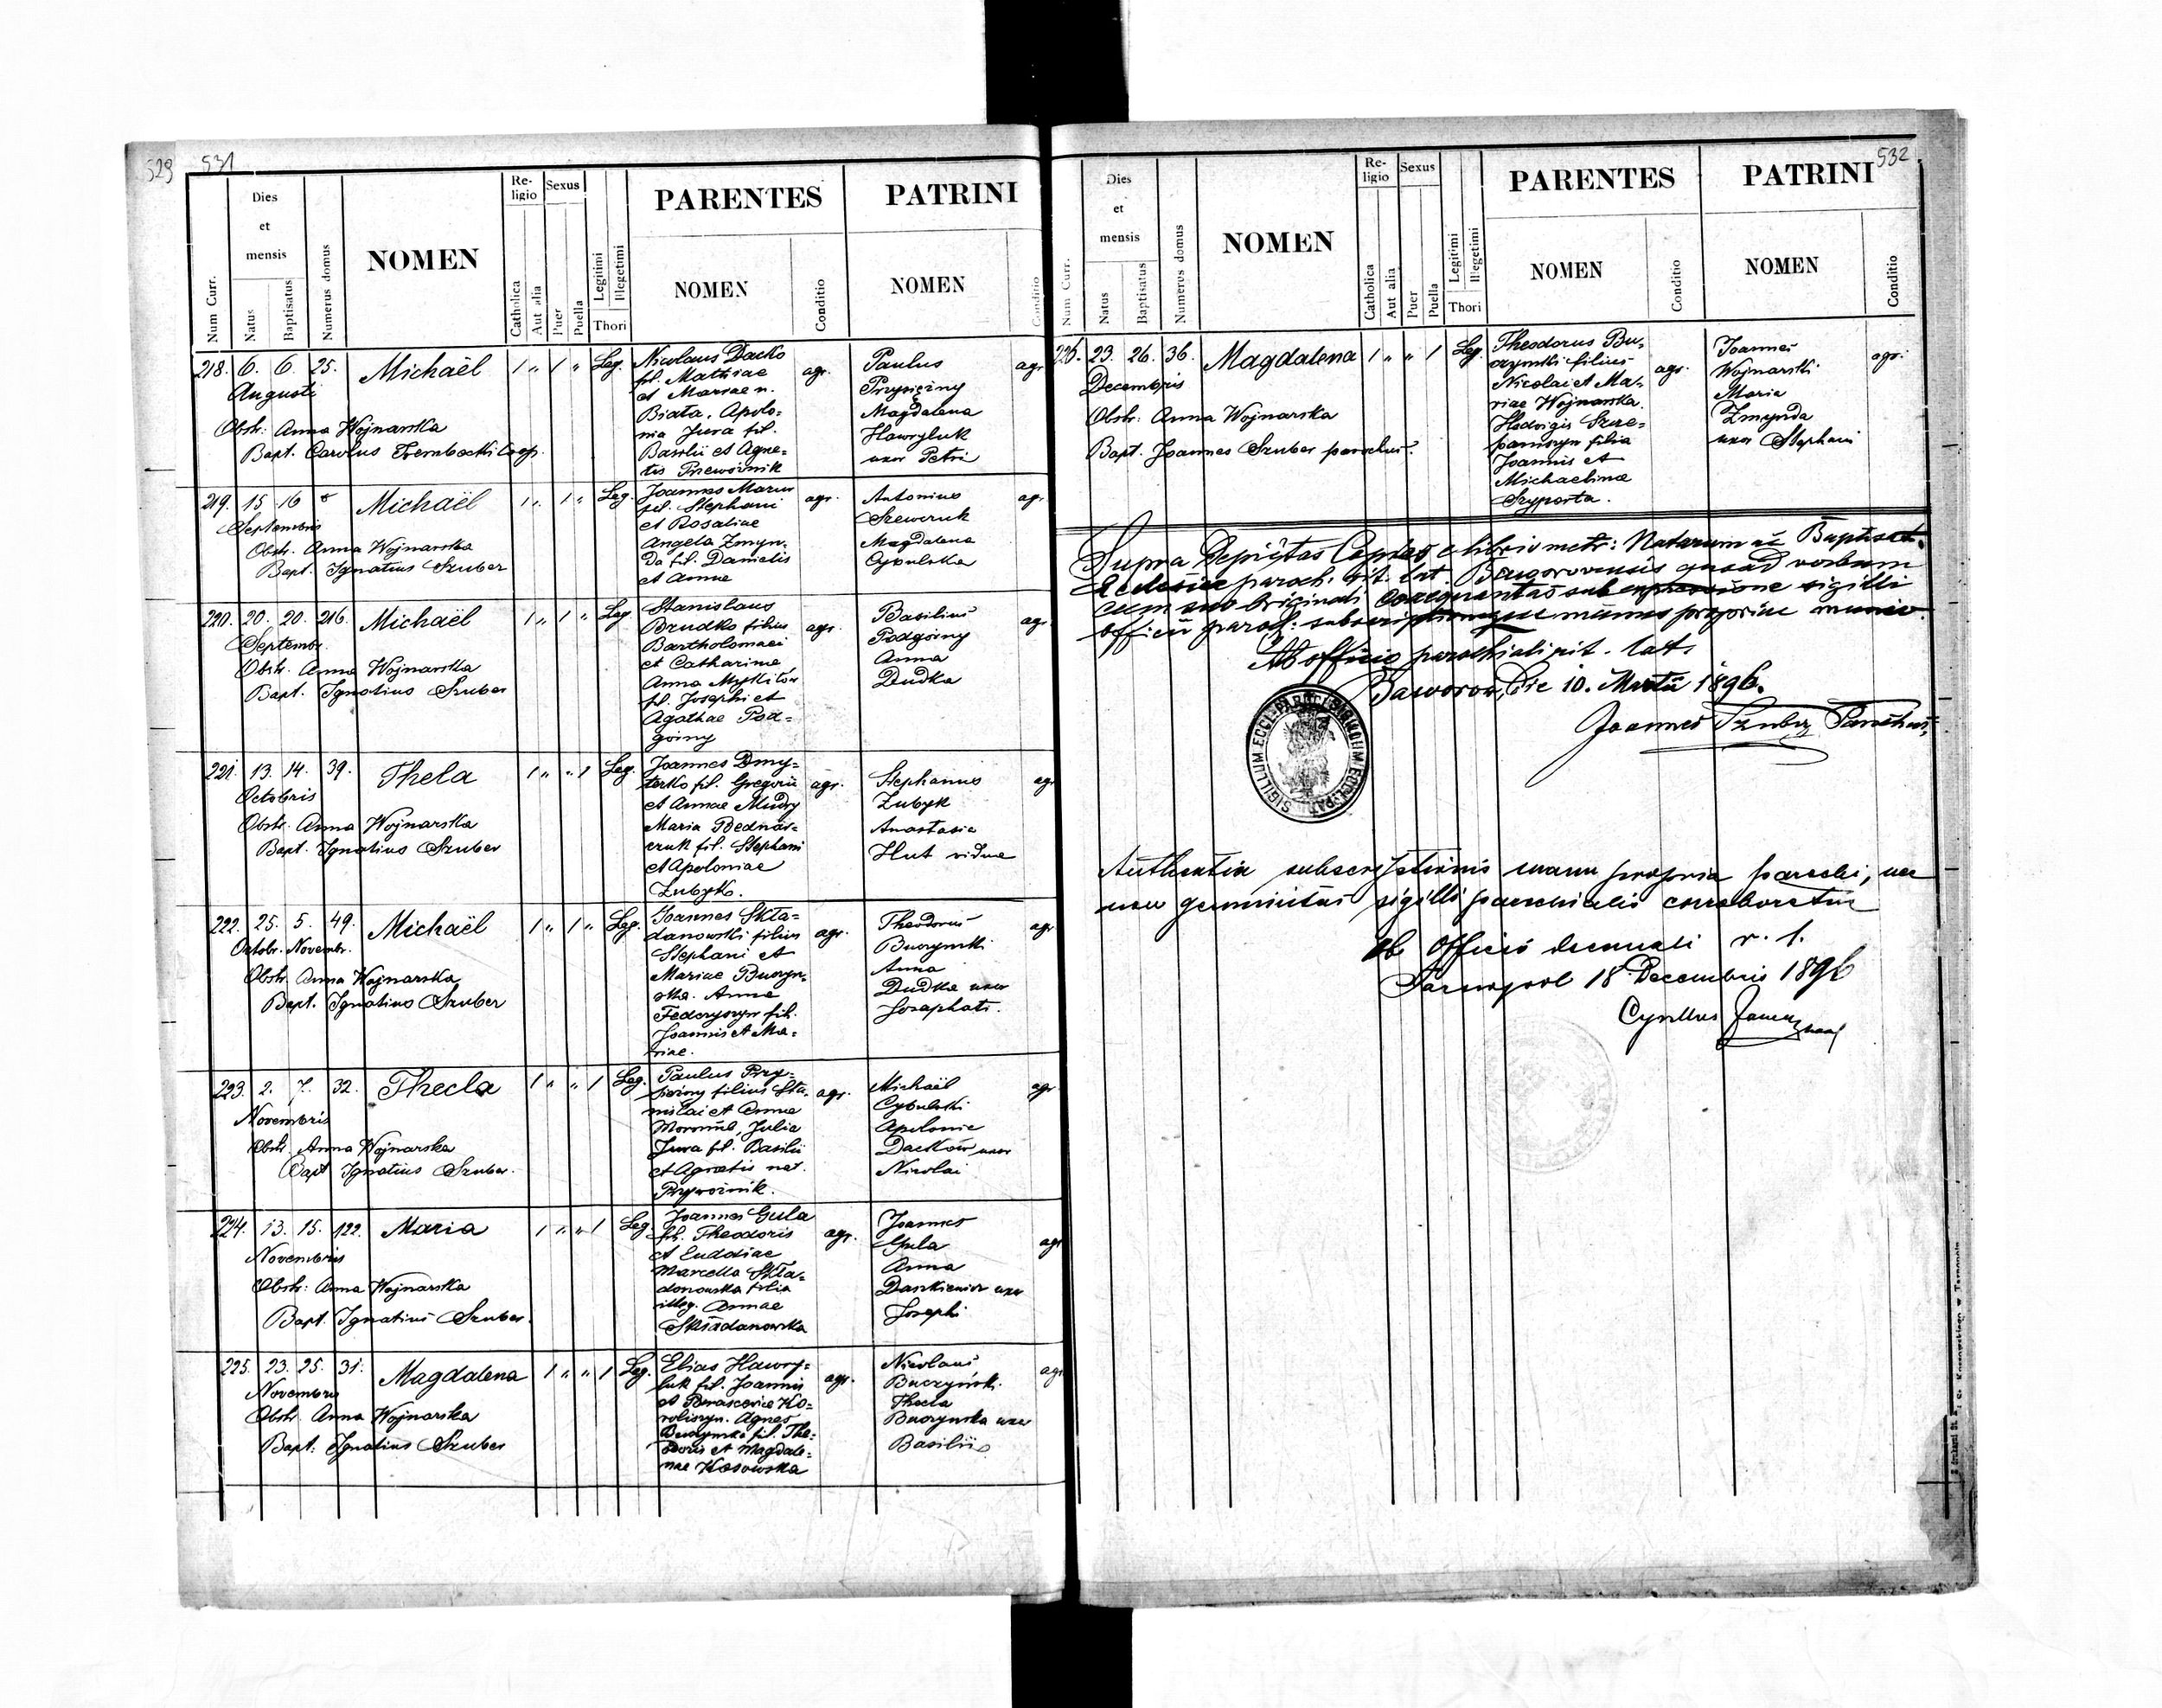 529 531
Num Curr.
Dies
et
mensis
Natus
Baptisatus
Numerus domus
NOMEN
Re-
ligio
Catholica
Aut alia
Sexus
Puer
Puella
Legitimi
Illegetimi
Thori
PARENTES
NOMEN
Conditio
PATRINI
NOMEN
Conditio
218. 6. 6. 25. Michaël 1 " 1 " Leg.
Augusti
Obstr. Anna Wojnarska
Bapt. Carolus Trembecki Coop.
Nicolaus Dacko
fil. Mathiae
et Mariae n.
Biała. Apolo=
nia Jura fil.
Basilii et Agne=
tis
agr.
Paulus
Przysiężny
Magdalena
Hawryluk
uxor Petri
agr.
219. 15 16 8 Michaël 1 " 1 " Leg.
Septembris
Obstr. Anna Wojnarska
Bapt. Ignatius Szuber
Joannes
fil. Stephani
et Rosaliae
Angela Zmyn=
da fil. Danielis
et Annae
agr.
Antonius
Szewczuk
Magdalena
Cybulska
agr.
220. 20. 20. 216. Michaël 1 " 1 " Leg.
Septembr.
Obstr. Anna Wojnarska
Bapt. Ignatius Szuber
Stanislaus
Brudko filius
Bartholomaei
et Catharinae
Anna Mykitów
fil. Josephi et
Agathae Pod=
góiny
agr.
Basilius
Podgórny
Anna
Dudka
agr.
221. 13. 14. 39. Thela 1 " " 1 Leg.
Octobris
Obstr. Anna Wojnarska
Bapt. Ignatius Szuber
Joannes Dmy=
terko fil. Gregorii
et Annae Mudry
Maria Bednar=
czuk fil. Stephani
et Apoloniae
Zubyk.
agr.
Stephanus
Zubyk
Anastasia
Hut vidua
agr.
222. 25. 5. 49. Michaël 1 " 1 " Leg.
Octobr. Novembr.
Obstr. Anna Wojnarska
Bapt. Ignatius Szuber
Joannes Skła=
danowski filius
Stephani et
Mariae Buczyn=
ska. Anna
Federyszyn fil.
Joannis et Ma=
riae.
agr.
Theodorus
Buczynski
Anna
Dudka uxor
Josaphati.
agr.
223. 2. 7. 32. Thecla 1 " " 1 Leg.
Novembris
Obstr. Anna Wojnarska
Bapt Ignatius Szuber.
Paulus Przy=
filius Sta=
nislai et Annae
Julia
Jura fil. Basilii
et Agnetis nat.
Przywoźnik.
agr.
Michaël
Cybulski
Apolonia
Dacków uxor
Nicolai
agr.
224. 13. 15. 122. Maria 1 " " 1 Leg.
Novembris
Obstr: Anna Wojnarska
Bapt. Ignatius Szuber.
Joannes Gula
fil. Theodoris
et Eudoxiae
Marcella Skła=
danowska filia
illeg. Annae
Składanowska
agr.
Joannes
Gula
Anna
Daszkiewicz uxor
Josephi
agr
225. 23. 25. 31. Magdalena 1 " " 1 Leg.
Novembris
Obstr. Anna Wojnarska
Bapt. Ignatius Szuber
Elias Hawry=
luk fil. Joannis
et Parasceviae Ko=
roliszyn. Agnes
Buczynska fil. The=
doris et Magdale=
nae Kosowska
agr.
Nicolaus
Buczyński.
Thecla
Buczynska uxor
Basilii
agr
532
Num Curr.
Dies
et
mensis
Natus
Baptisatus
Numerus domus
NOMEN
Re-
ligio
Catholica
Aut alia
Sexus
Puer
Puella
Legitimi
Illegetimi
Thori
PARENTES
NOMEN
Conditio
PATRINI
NOMEN
Conditio
226. 23. 26. 36. Magdalena 1 " " 1 Leg.
Decembris
Obstr: Anna Wojnarska
Bapt. Joannes Szuber parochus.
Theodorus Bu=
czynski filius
Nicolai et Ma=
riae Wojnarska.
Hedvigis Szcze=
paniszyn filia
Joannis et
Michaelinae
Szyposta.
agr.
Joannes
Wojnarski
Maria
Zmynda
uxor Stephani
agr.
Supra depictas Copias e libris metr: Natorum ac Baptisat.
Ecclesiae paroch. rit. lat. Baworoviensis quoad verbum
cum suo originali coaequantas sub expressione sigilli
officii paroch: subscriptionisque manus propriae munio.
Ab officio parochiali rit. lat.
Baworow, die 10. Martii 1896.
Joannes Szuber Parochus
SIGILLUM ECCL. PAROCH
subscriptionis manu propria parochi, nec
non genuinitas sigilli parochialis corroboratur
Ab Officio decanali r. l.
Tarnopol 18 Decembris 1896
Cyrillus